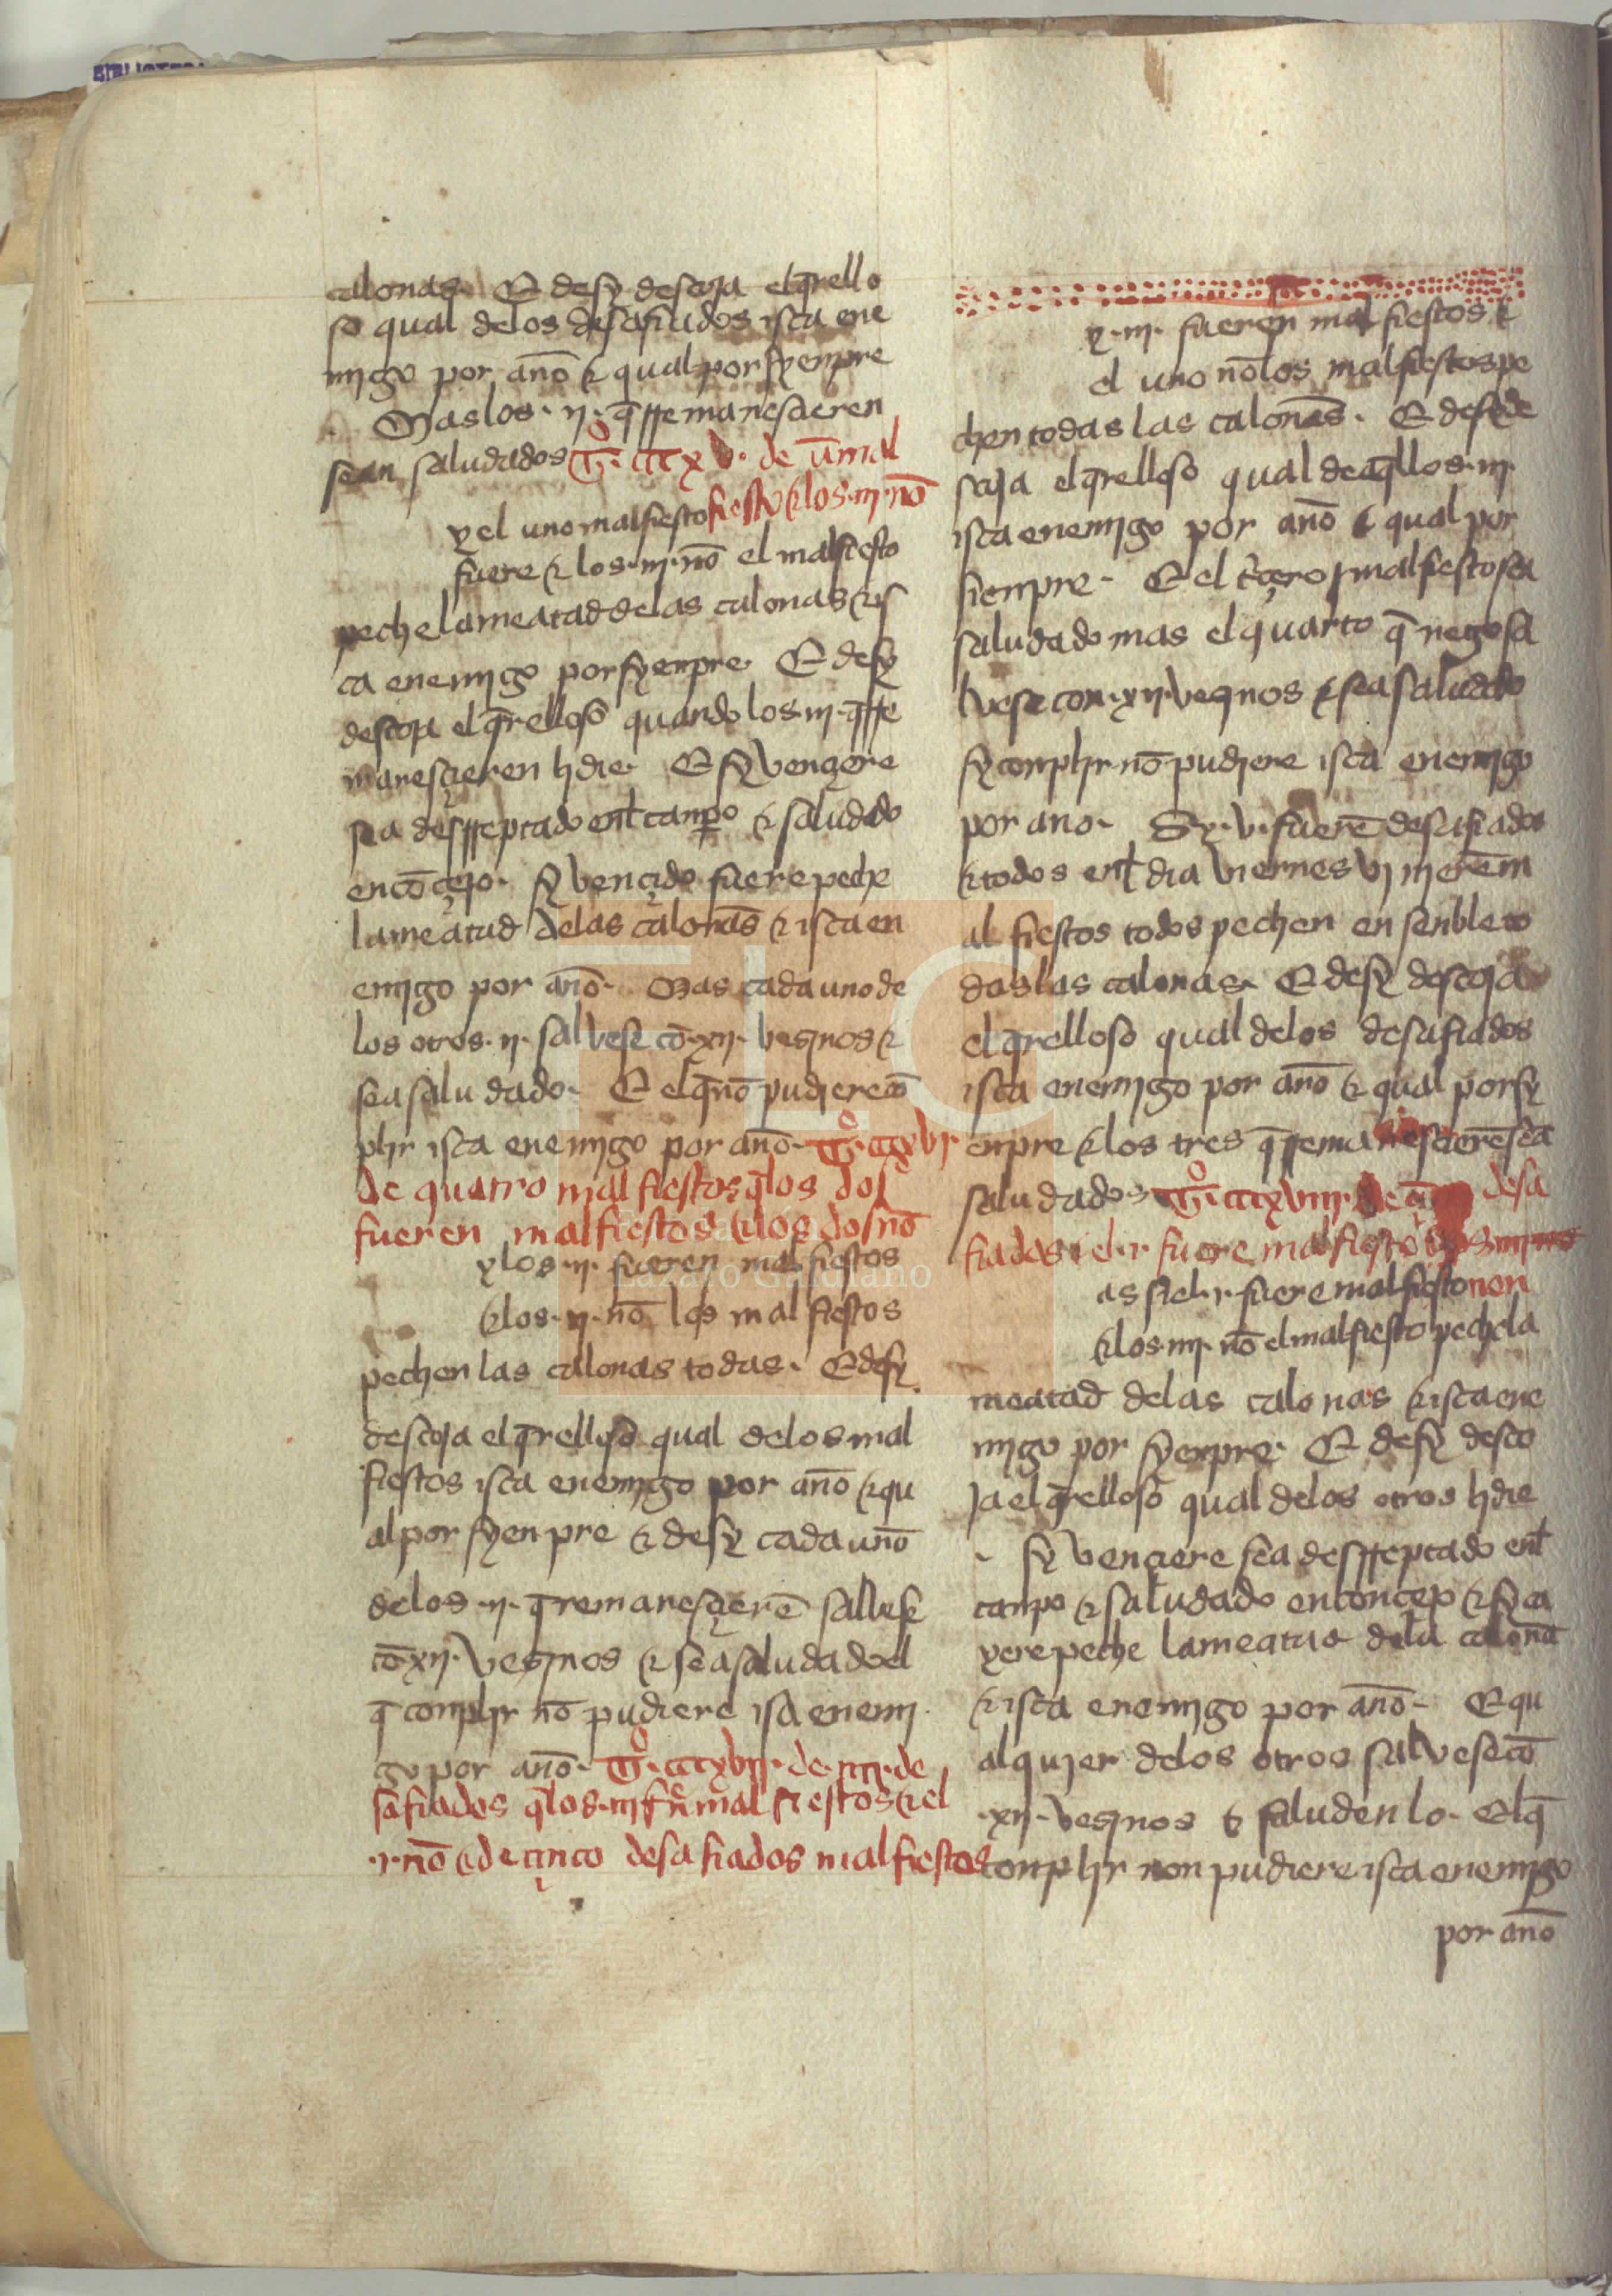 calonas. E desy descoja el q̃rello
so qual delos desafiados isca ene
migo por año & qual por syenpre
Mas los .ij. q̃ rremanescieren
sean saludados Tº. cccxv. de ũ mal
fiesto & los .iij. nõ
y el uno malfiesto
fuere & los .iij. nõ el malfiesto
peche la meatad delas calonas & is
ca enemigo por syenpre. E desy
descoja el q̃relloso quando los .iij. q̃ rre
manesçieren lidie. E sy vençiere
sea desrreptado enl canpo & saludado
en cõçejo. sy vençido fuere peche
la meatad delas calonas & isca en
emigo por año. Mas cada uno de
los otros .ij. salvese cõ .xij. vesinos &
sea saludado. E el q̃ nõ pudiere cõ
plir isca enemigo por año. Tº. cccxvi
de quatro malfiestos q̃ los dos
fueren malfiestos & los dos nõ
y los .ij. fueren malfiestos
& los .ij. nõ los malfiestos
pechen las calonas todas. E desy
descoja el q̃relloso qual delos mal
fiestos isca enemigo por año & qu
al por syenpre & desy cada uno
delos .ij. q̃ remanesçierẽ salvese
cõ .xij. vesinos & sea saludado el
q̃ conplir nõ pudiere isca enemi
go por año. Tº. cccxvij. de .iiij. de
safiados q̃ los .iij. fũ malfiestos & el
.i. nõ & de çinco desafiados malfiestos
y .iij. fueren malfiestos &
el uno nõ los malfiestos pe
chen todas las calonas. E desy de
scoja el q̃relloso qual de aq̃llos .iij.
isca enemigo por año & qual por
sienpre. E el t̃çero malfiesto sea
saludado mas el quarto q̃ nego sa
lvese con .xij. veqnos & sea saludado
sy conplir nõ pudiere isca enemigo
por ano. Sy .v. fuerẽ desafiados
& todos enl dia viernes vinierẽ m
al fiestos todos pechen ensenble to
das las calonas. E desy descoja
el q̃relloso qual delos desafiados
isca enemigo por año & qual por sy
enpre & los tres q̃ rremanescierẽ seã
saludados Tº. cccxviij. de desa
fiados el .i. fuere malfiesto & los .iiij. nõ
as si el .i. fuere malfiesto non
& los .iiij. nõ el malfiesto peche la
meatad delas calonas & isca ene
migo por syenpre. E desy desco
ja el q̃relloso qual delos otros lidie
sy venciere sea desrreptado enl
canpo & saludado en concejo & sy ca
yere peche la meatad dela calona
& isca enemigo por año. E qu
alquier delos otros salvese cõ
.xij. vesinos & saludenlo. El q̃
conplir non pudiere isca enemigo
por año